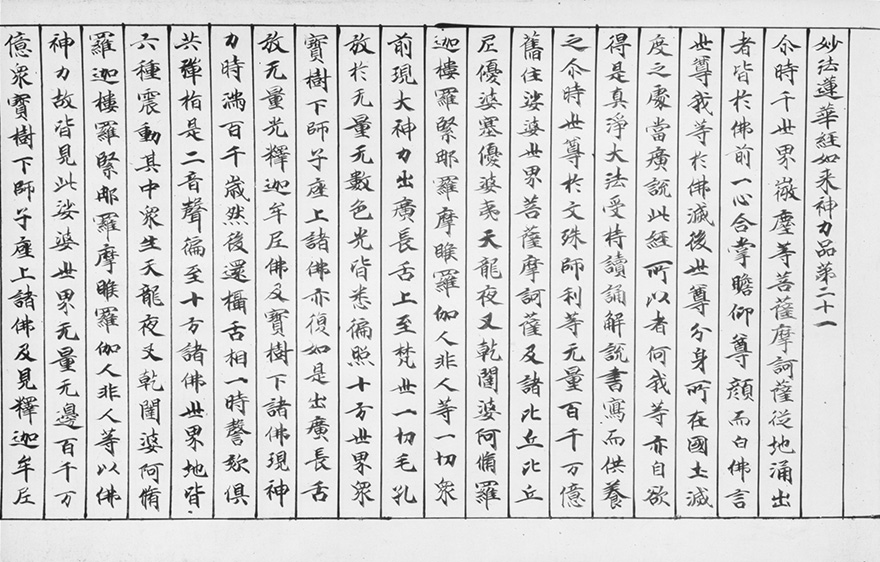 妙法蓮華經如来神力品第二十一
尒時千世界微塵等菩薩摩訶薩従地涌出
者皆於佛前一心合掌瞻仰尊顔而白佛言
世尊我等於佛滅後世尊分身所在國土滅
度之處當廣説此經所以者何我等亦自欲
得是真淨大法受持讀誦解説書寫而供養
之尒時世尊於文殊師利等无量百千万億
舊住娑婆世界菩薩摩訶薩及諸比丘比丘
尼優婆塞優婆夷天龍夜叉乾闥婆阿脩羅
迦樓羅緊那羅摩睺羅伽人非人等一切衆
前現大神力出廣長舌上至梵世一切毛孔
放於无量无數色光皆悉徧照十方世界衆
寶樹下師子座上諸佛亦復如是出廣長舌
放无量光釋迦牟尼佛及寶樹下諸佛現神
力時満百千歳然後還攝舌相一時謦欬俱
共彈指是二音聲徧至十方諸佛世界地皆
六種震動其中衆生天龍夜叉乾闥婆阿脩
羅迦樓羅緊那羅摩睺羅伽人非人等以佛
神力故皆見此娑婆世界无量无邊百千万
億衆寶樹下師子座上諸佛及見釋迦牟尼